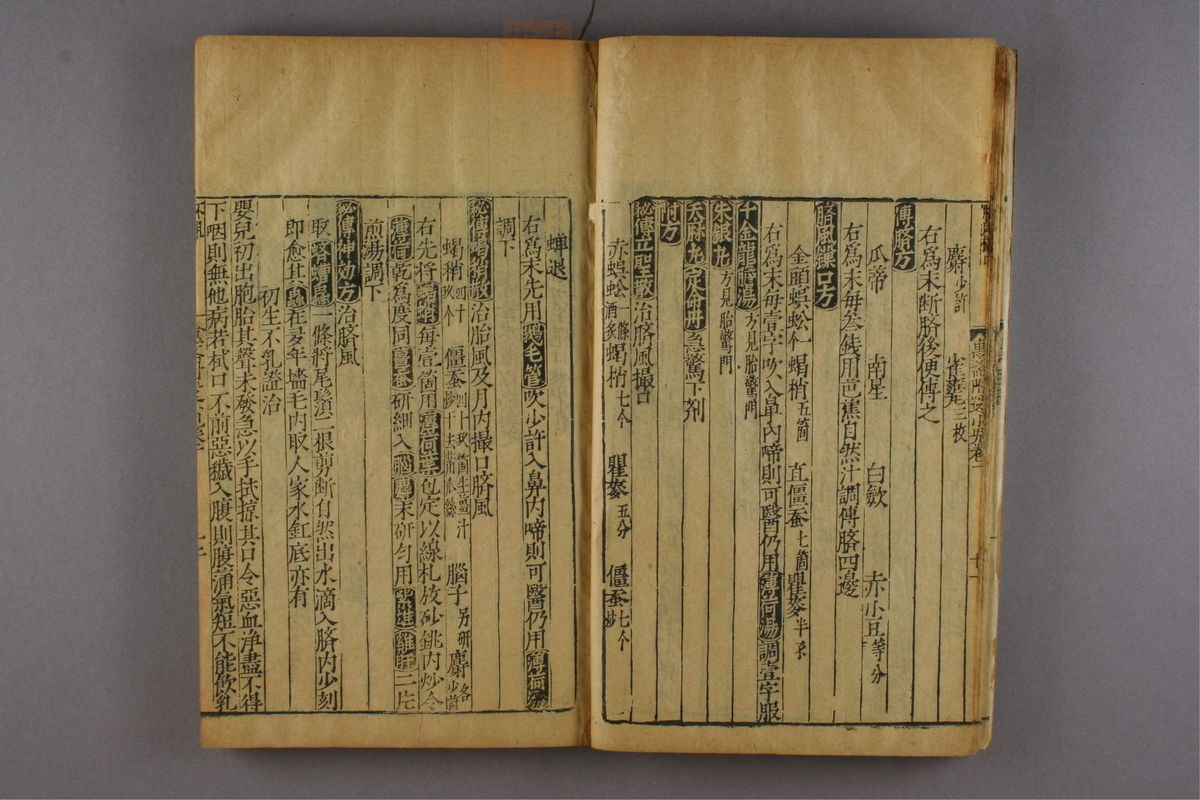 麝少許 雀甕三枚
右爲末断臍後便傅之
傅臍方
瓜蒂 南星 白斂 赤小豆等分
右爲末每叁錢用芭蕉自然汁調傅臍四邊
臍風鎖口方
金頭蜈蚣 蝎梢五箇 直僵蚕七箇 瞿麥半
右爲末每壹字吹入鼻内啼則可醫仍用薄荷湯調壹字服
千金龍膽湯方見胎驚門
朱銀丸方見胎驚門
天麻丸定命丹急驚下劑
附方
秘傳立聖散治臍風撮口
赤蜈蚣一條酒炙 蝎梢七个 瞿麥五分 僵蚕七个炒
蟬退
右爲末先用鵝毛管吹少許入鼻内啼則可醫仍用薄荷湯
調下
秘傳蝎梢散治胎風及月内撮口臍風
蝎梢四十玖个 僵蚕四十玖箇生薑汁炒干去 腦子另研 麝少許
右先将蝎梢每壹箇用薄荷葉包定以線札放砂銚内炒令
薄荷乾爲度同薑蚕研細入腦麝末研匀用雄雞肝二片
煎湯調下
秘傳神効方治臍風
取一條將尾鬚二根剪断自然出水滴入臍内少刻
即愈其在多年墻毛内取人家水缸底亦有
初生不乳證治
嬰兒初出胞胎其聲未發急以手拭掠其口令惡血淨盡不得
下咽則無他病若拭口不前惡穢入腹則腹滿氣短不能飲乳